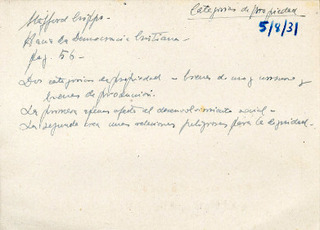 Categorías de propiedad
5/8/31
Stafford Cripps.
Democracia Cristiana -
pag. 56 -
Dos categorías de propiedad - bienes de uso y consumo y
bienes de producción.
La primera apenas afecta al desenvolvimiento social -
La segunda crea unas relaciones peligrosas para la dignidad -